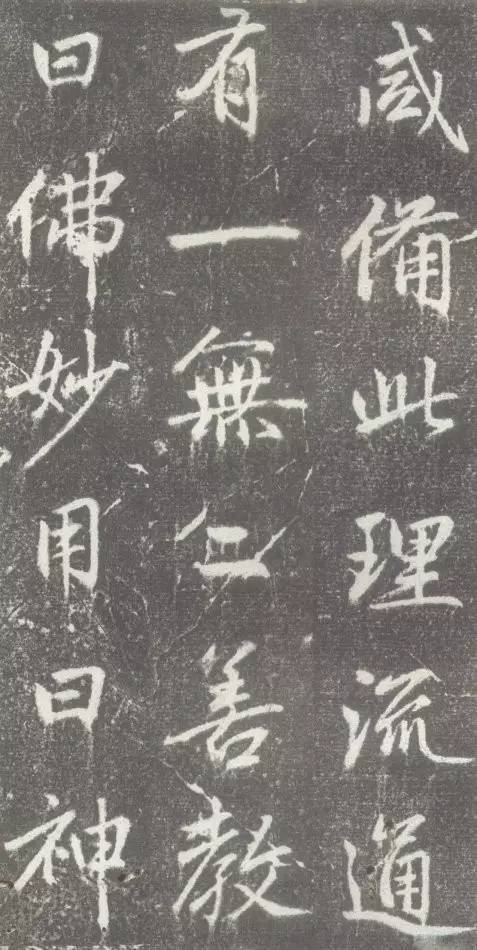 咸備此理流通
有一無二善教
曰佛妙用曰神